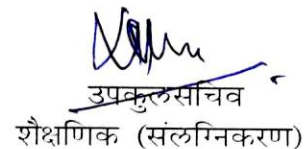 उपकुलसचिव
शैक्षणिक (संलग्निकरण)